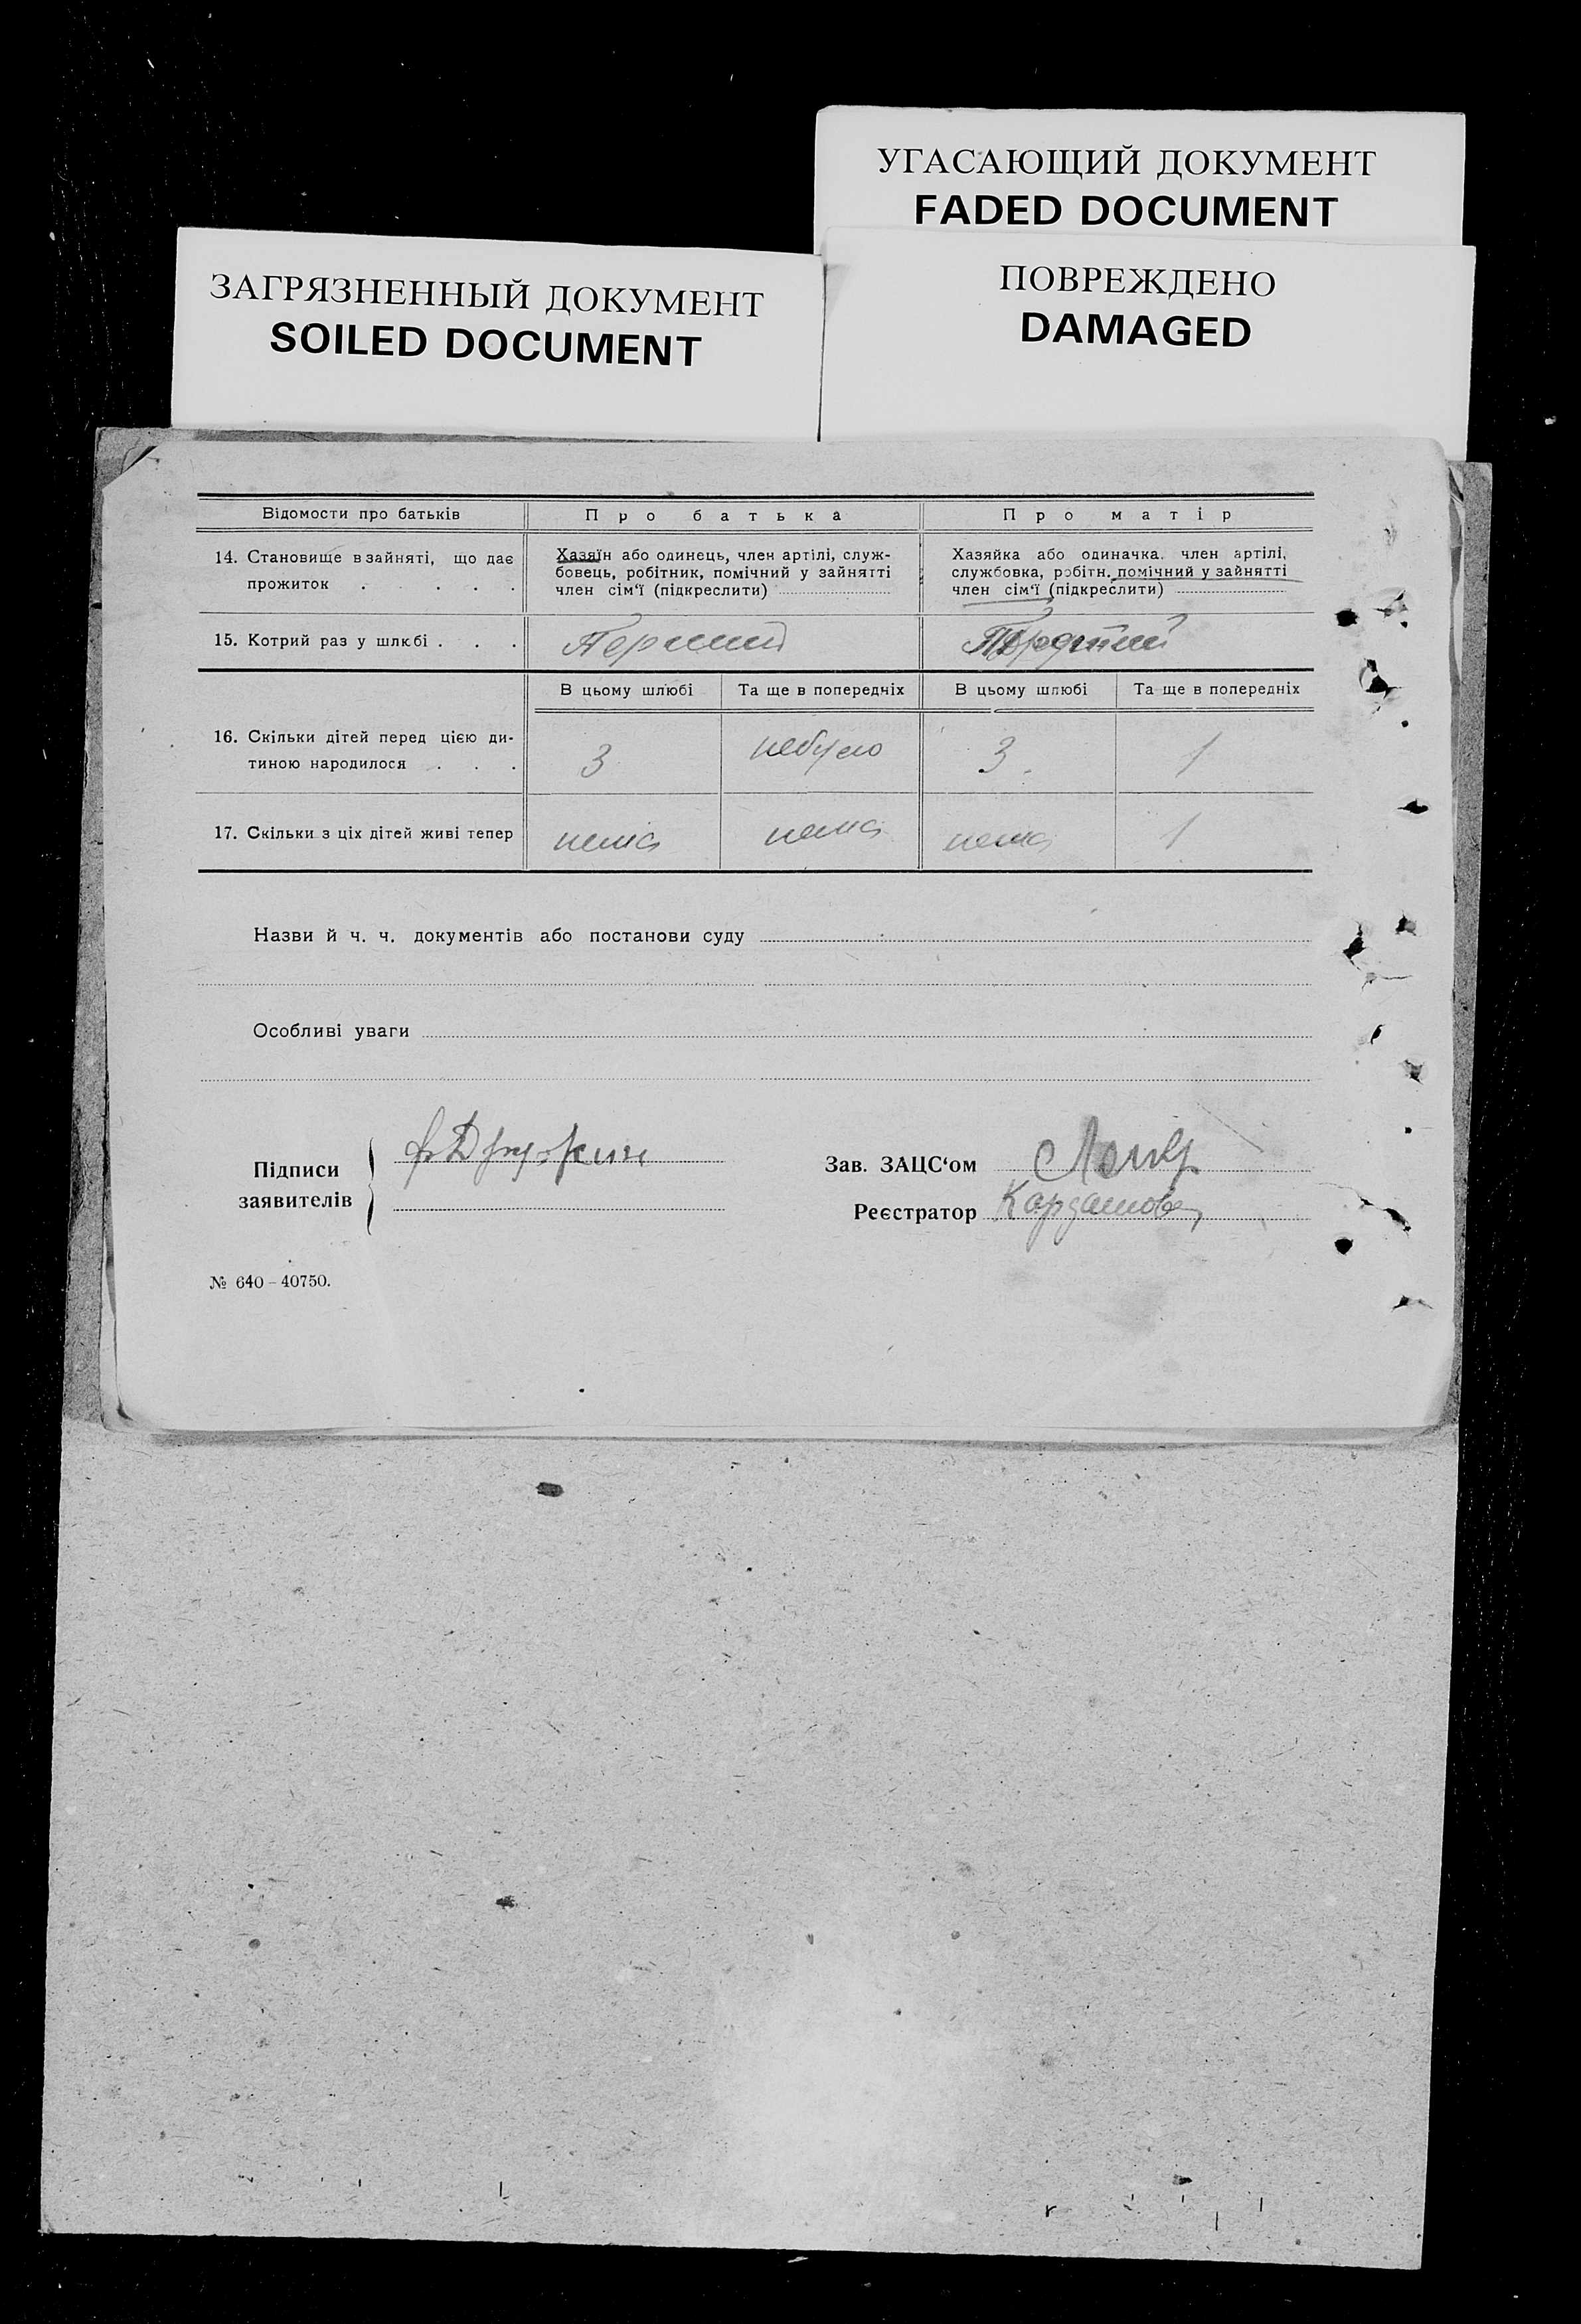 УГАСАЮЩИЙ ДОКУМЕНТ
FADED DOCUMENT
ЗАГРЯЗНЕННЫЙ ДОКУМЕНТ
SOILED DOCUMENT
ПОВРЕЖДЕНО
DAMAGED
Відомости про батьків Про батька Про матір
14. Становище в зайняті, що дає прожиток . . . .
Хазяїн або одинець, член артілі, служ-
бовець, робітник, помічний у зайнятті
член сім'ї (підкреслити)
Хазяйка або одиначка, член артілі,
службовка, робітн. помічний у зайнятті
член сім'ї (підкреслити)
15. Котрий раз у шлюбі . . . Перший
В цьому шлюбі Та ще в попередніх В цьому шлюбі Та ще в попередніх
16. Скільки дітей перед цією ди-
тиною народилося . . . 3 небуло 3. 1
17. Скільки з ціх дітей живі тепер нема нема нема 1
Назви й ч. ч. документів або постанови суду
Особливі уваги
Підписи
заявителів
Зав. ЗАЦС'ом
Реєстратор
№ 640 – 40750.